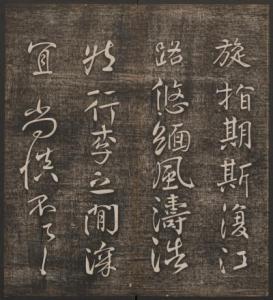 旋指期斯復江
路悠緬風濤浩
然行李之間深
宜尚慎不具